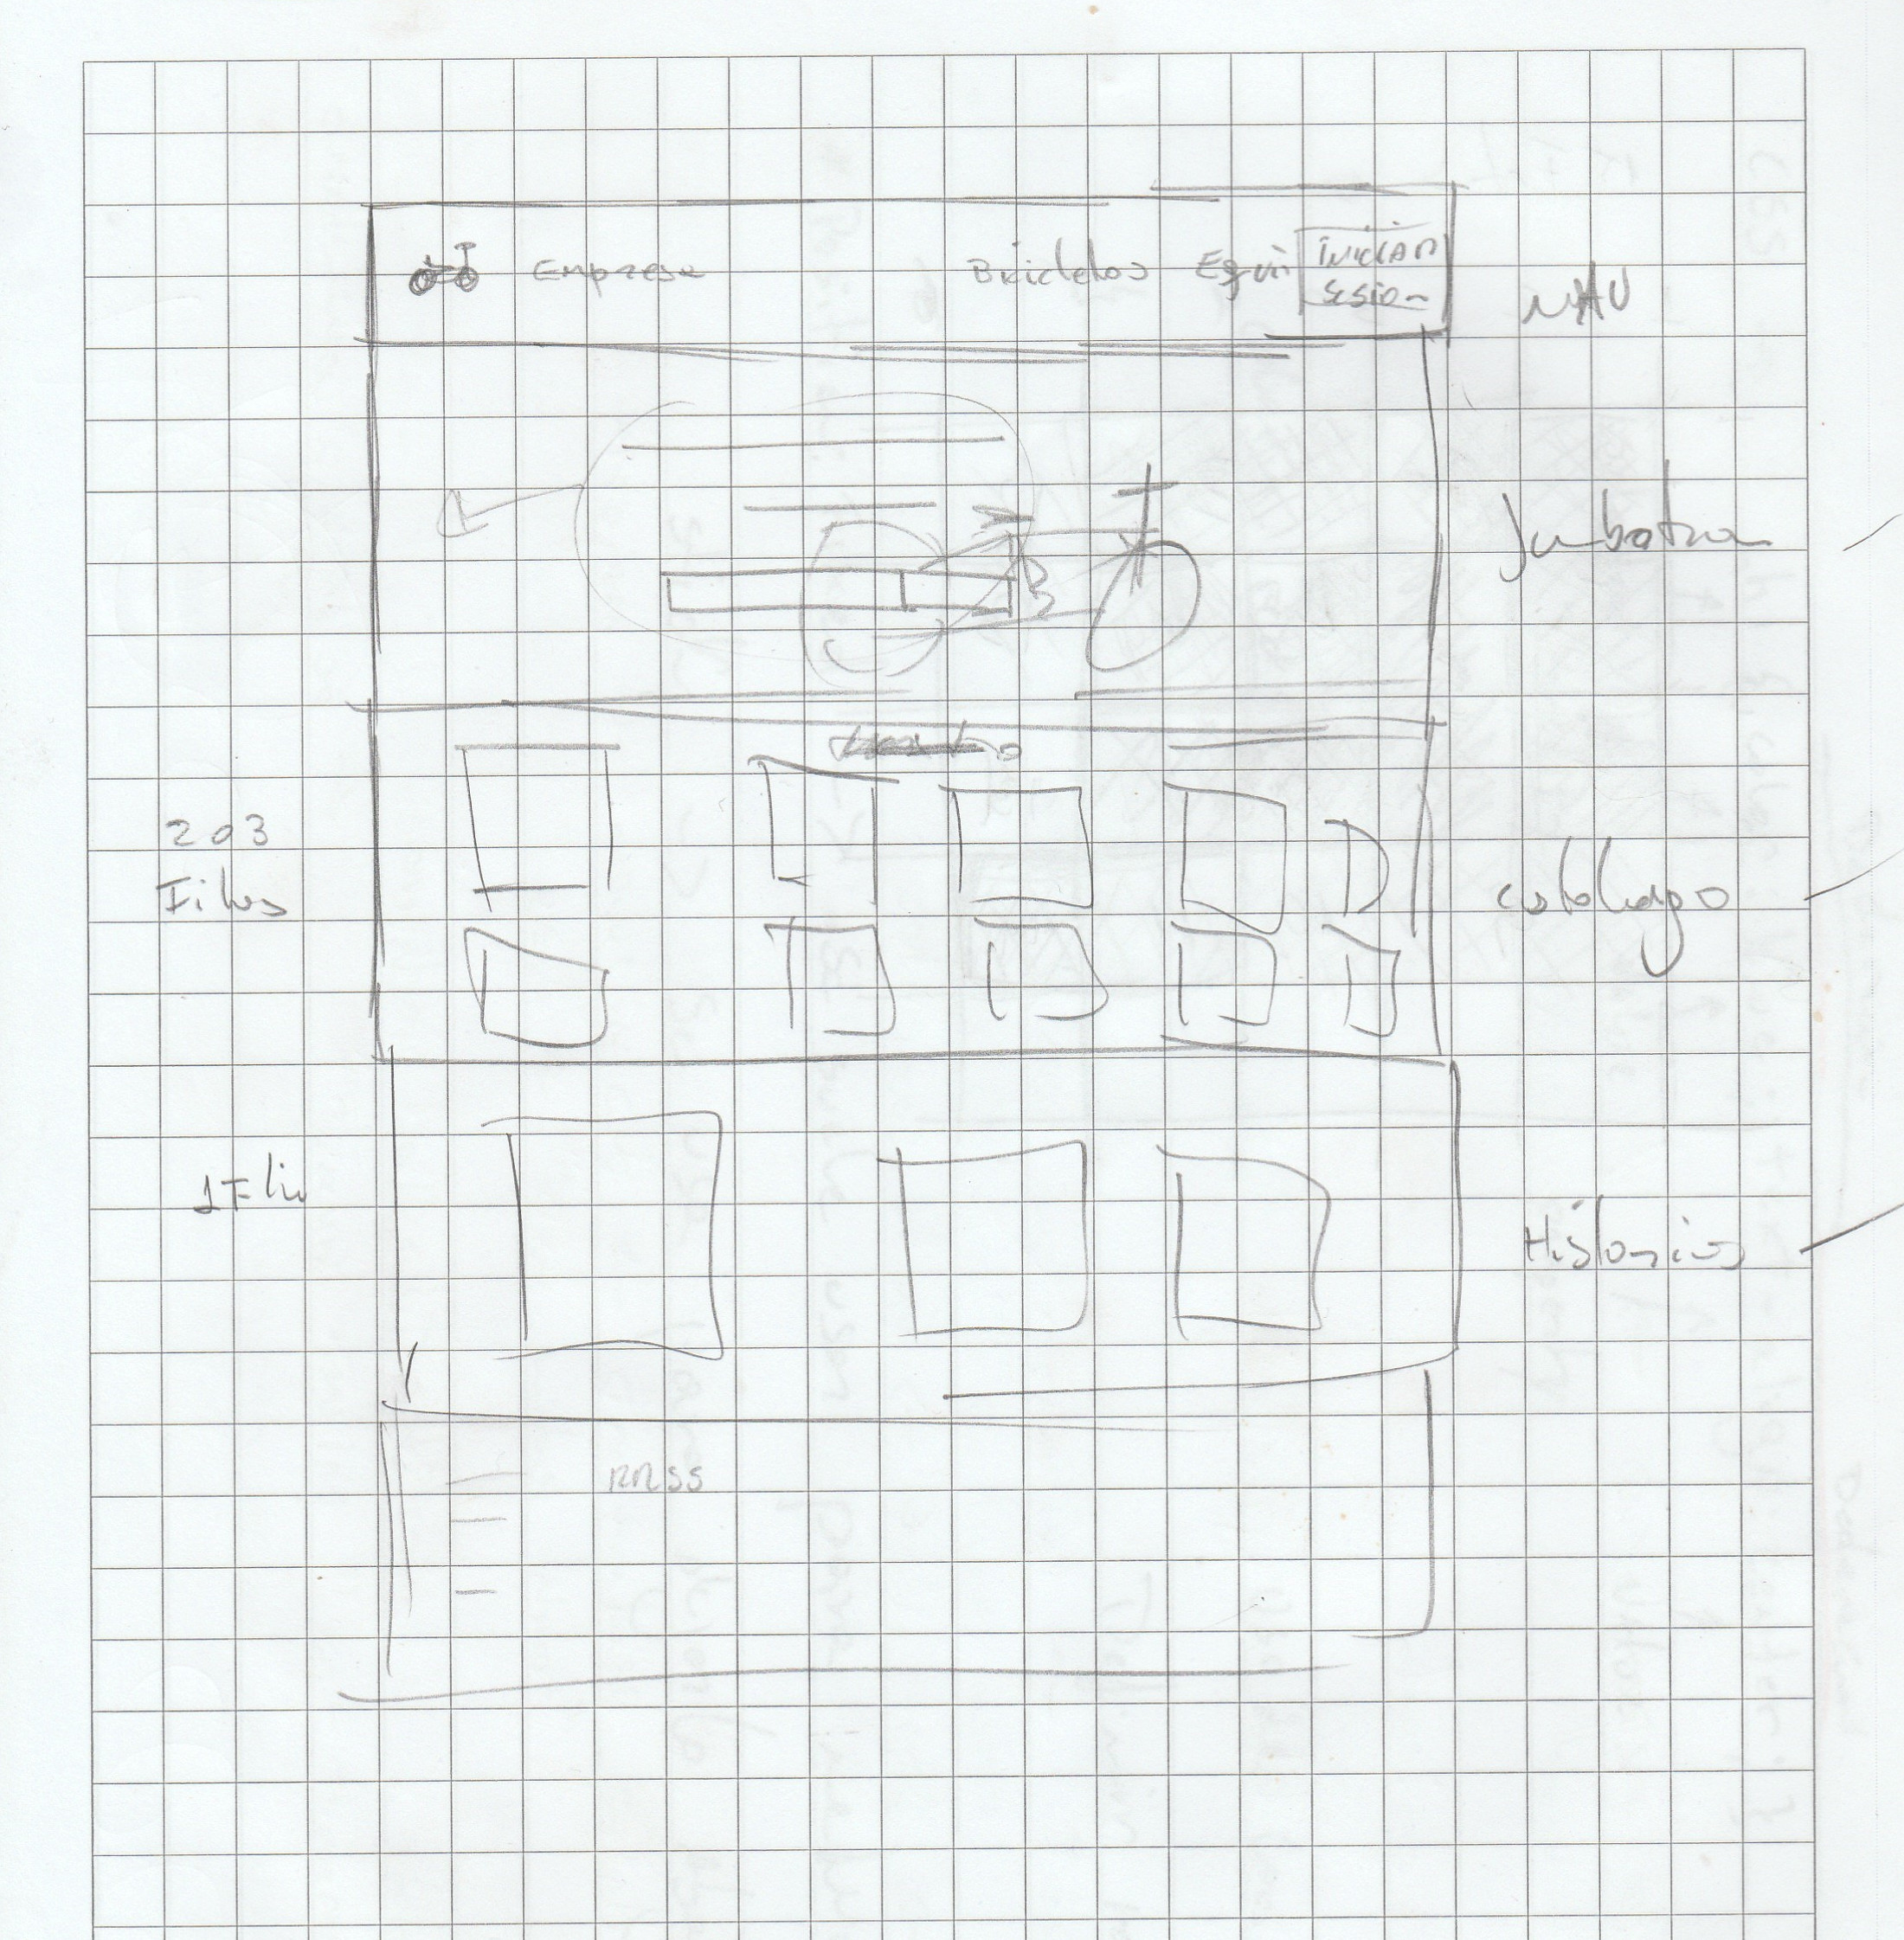 Emprese
Bicicletas
Equi
iniciar
sesion
NAU
Jumbotron
2 o 3
Filas
catalago
1 Fila
Historias
RRSS